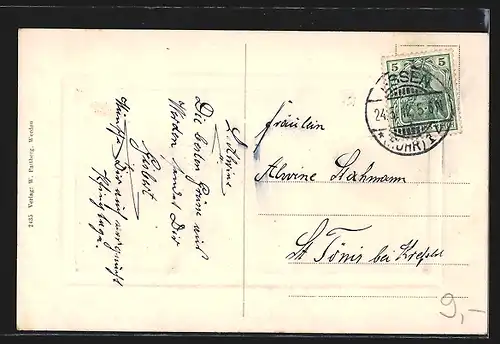 2435 Verlag: W. Pattberg, Werden
L. Alwine
Die besten Grüsse aus
Werden sendet Dir
Hubert
Wünsche Dir auch vergnügte
Pfingsttage.
Fräulein
Alwine Stahmann
St Tönis bei Krefeld
5 5
ESSEN
(RUHR)
9,-